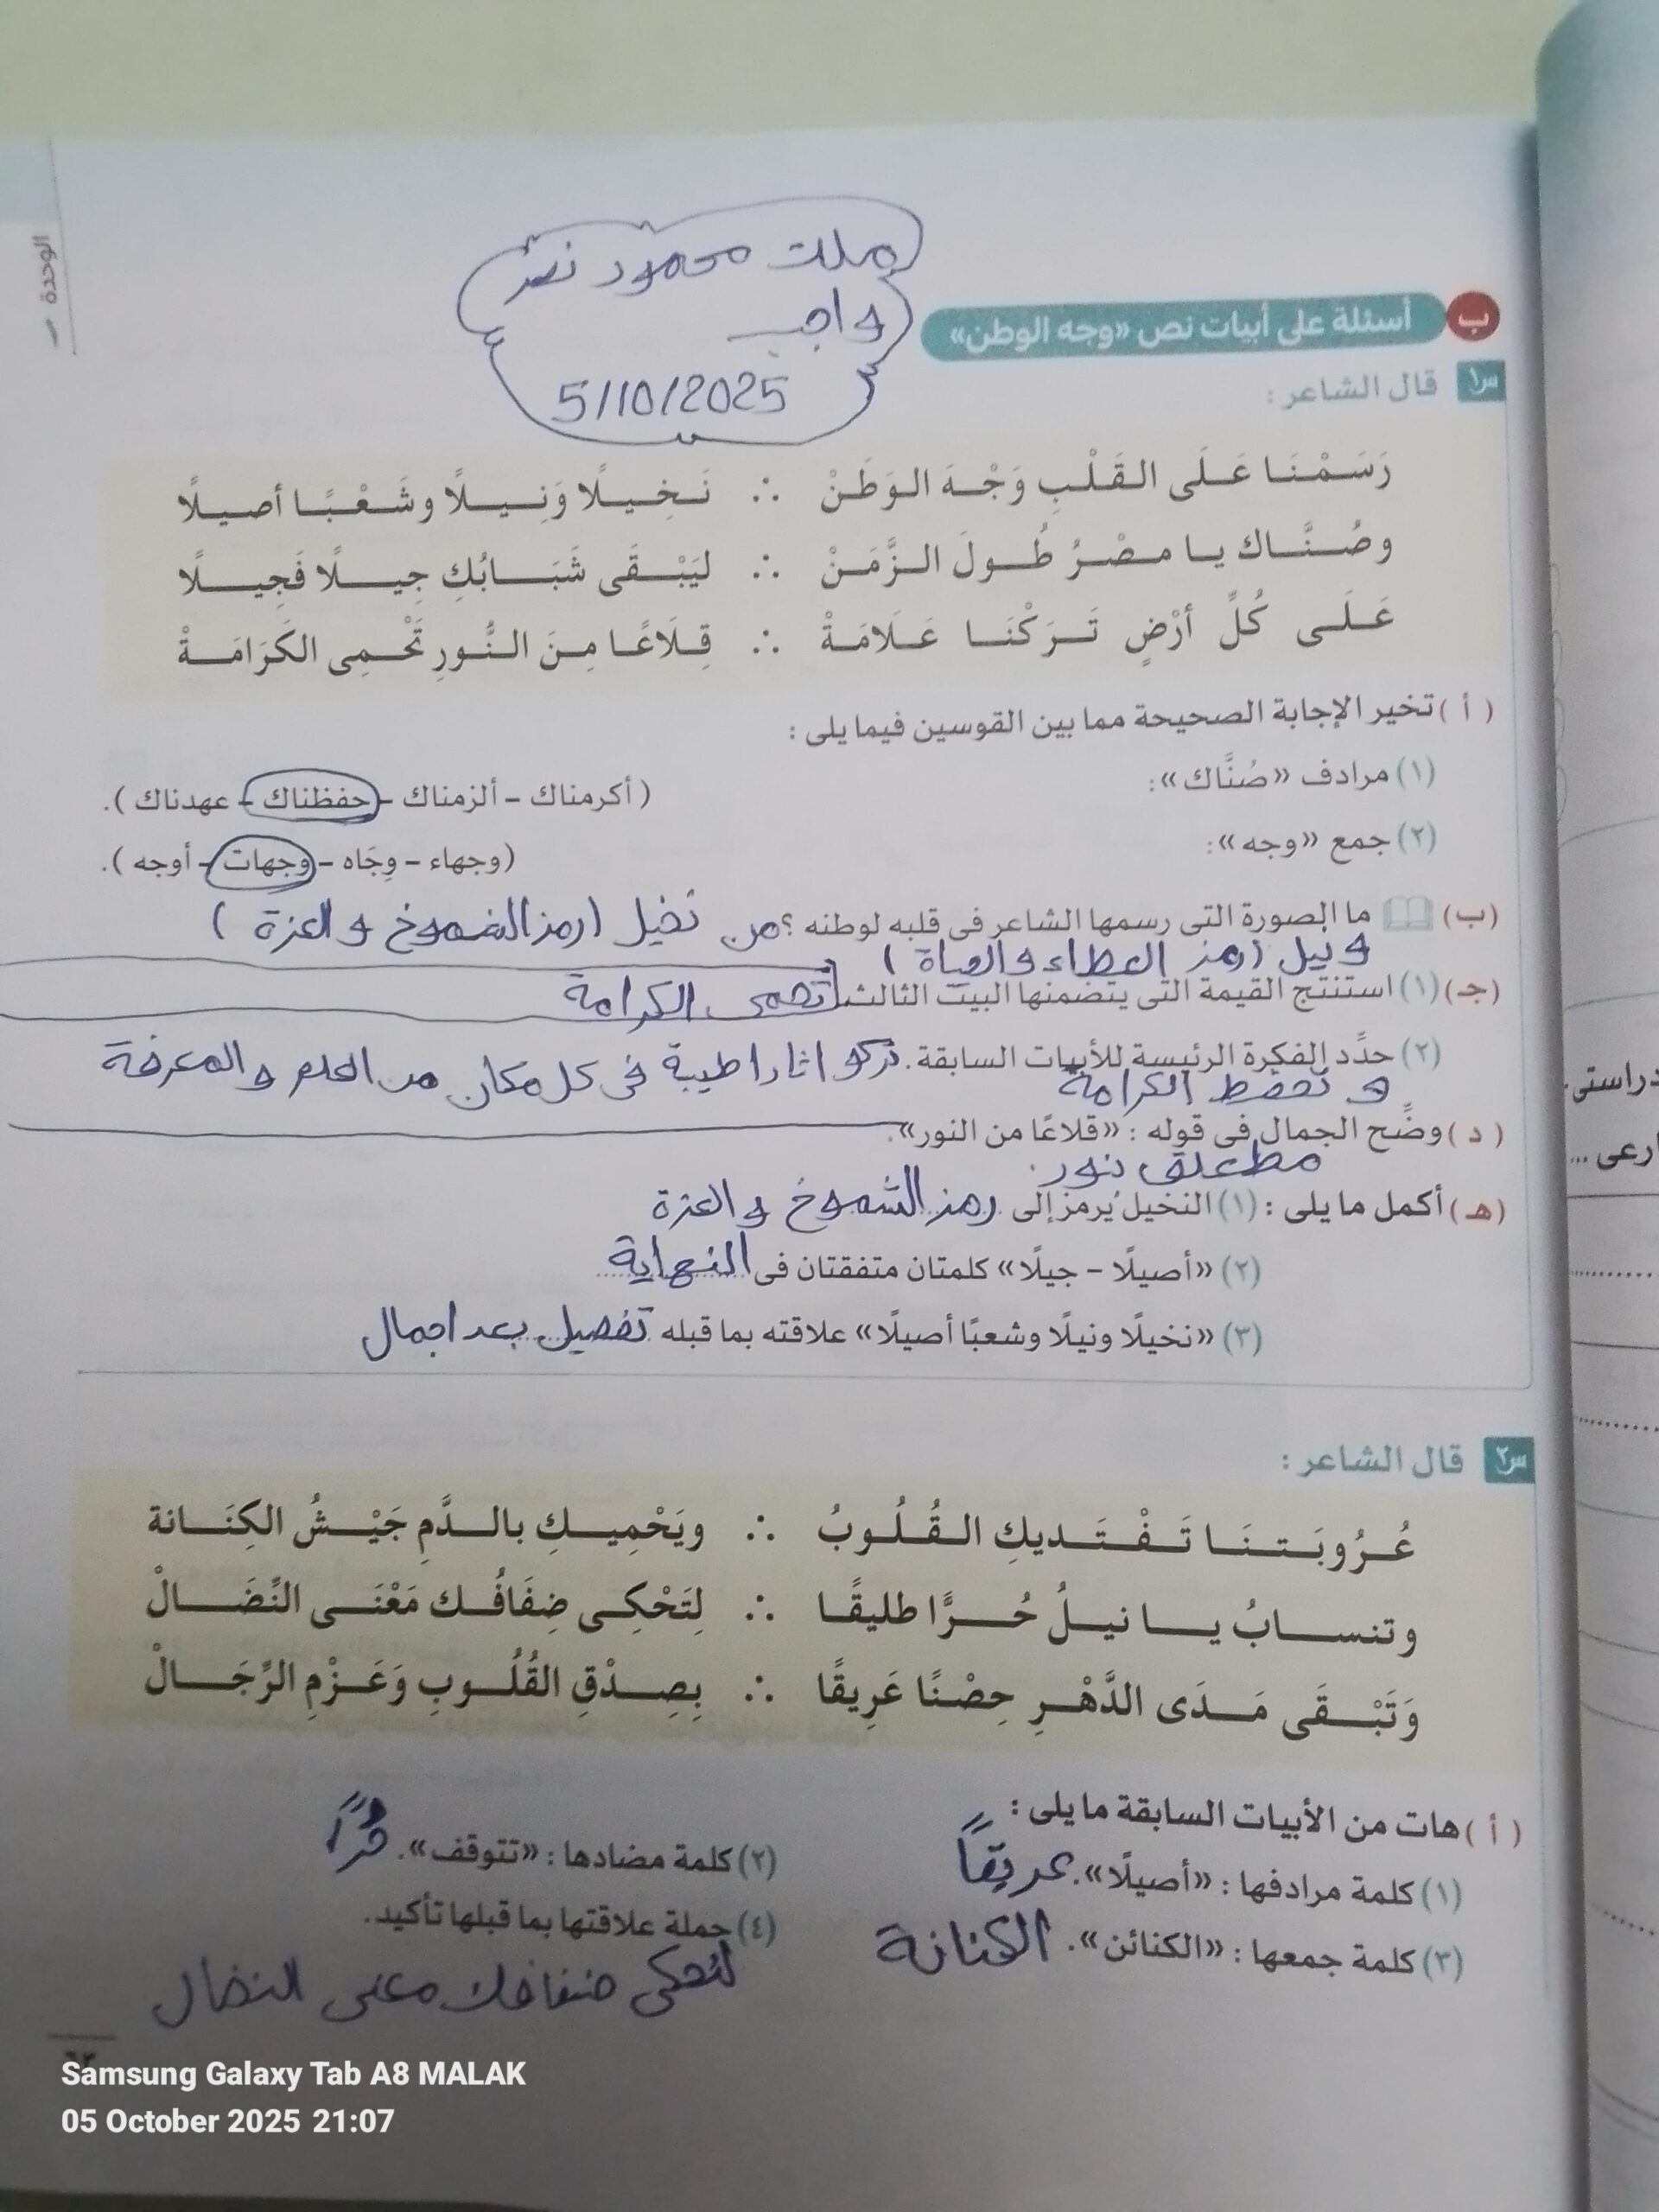 الوحدة
ملك محمود نصر
واجب
5/10/2025
ب أسئلة على أبيات نص «وجه الوطن»
س١ قال الشاعر :
رَسَمْنَا عَلَى القَلْبِ وَجْهَ الوَطَنْ ∴ نَخِيلًا وَنِيلًا وشَعْبًا أصيلًا
وصُنَّاك يا مصْرُ طُولَ الزَّمَنْ ∴ ليَبْقَى شَبَابُكِ جِيلًا فَجِيلًا
عَلَى كُلِّ أرْضٍ تَرَكْنَا عَلَامَةْ ∴ قِلَاعًا مِنَ النُّورِ تَحْمِى الكَرَامَةْ
( أ ) تخير الإجابة الصحيحة مما بين القوسين فيما يلى :
(١) مرادف «صُنَّاك»:
( أكرمناك – ألزمناك – حفظناك – عهدناك ).
(٢) جمع «وجه»:
(وجهاء – وِجَاه – وجهات – أوجه ).
(ب) ما الصورة التى رسمها الشاعر فى قلبه لوطنه ؟ من نخيل (رمز الشموخ و العزة )
و نيل (رمز العطاء و الحياة )
(جـ) (١) استنتج القيمة التى يتضمنها البيت الثالث. تحمى الكرامة
(٢) حدِّد الفكرة الرئيسة للأبيات السابقة. تركو اثارا طيبة فى كل مكان من العلم و المعرفة
و تحفظ الكرامة
( د ) وضِّح الجمال فى قوله : «قلاعًا من النور».
نور.
(هـ) أكمل ما يلى : (١) النخيل يُرمز إلى رمز الشموخ و العزة
(٢) «أصيلًا – جيلًا» كلمتان متفقتان فى النهاية
(٣) «نخيلًا ونيلًا وشعبًا أصيلًا» علاقته بما قبله تفصيل بعد اجمال
س٢ قال الشاعر :
عُرُوبَتنَا تَفْتَديكِ القُلُوبُ ∴ ويَحْمِيكِ بالدَّمِ جَيْشُ الكِنَانة
وتنسابُ يا نيلُ حُرًّا طليقًا ∴ لِتَحْكِى ضِفَافُك مَعْنَى النِّضَالْ
وَتَبْقَى مَدَى الدَّهْرِ حِصْنًا عَرِيقًا ∴ بِصِدْقِ القُلُوبِ وَعَزْمِ الرِّجَالْ
( أ ) هات من الأبيات السابقة ما يلى :
(١) كلمة مرادفها : «أصيلًا». عريقاً
(٢) كلمة مضادها : «تتوقف». حُرًّا
(٣) كلمة جمعها : «الكنائن». الكنانة
(٤) جملة علاقتها بما قبلها تأكيد.
لتحكى ضفافك معنى النضال
دراستى
ارعى ...
Samsung Galaxy Tab A8 MALAK
05 October 2025 21:07